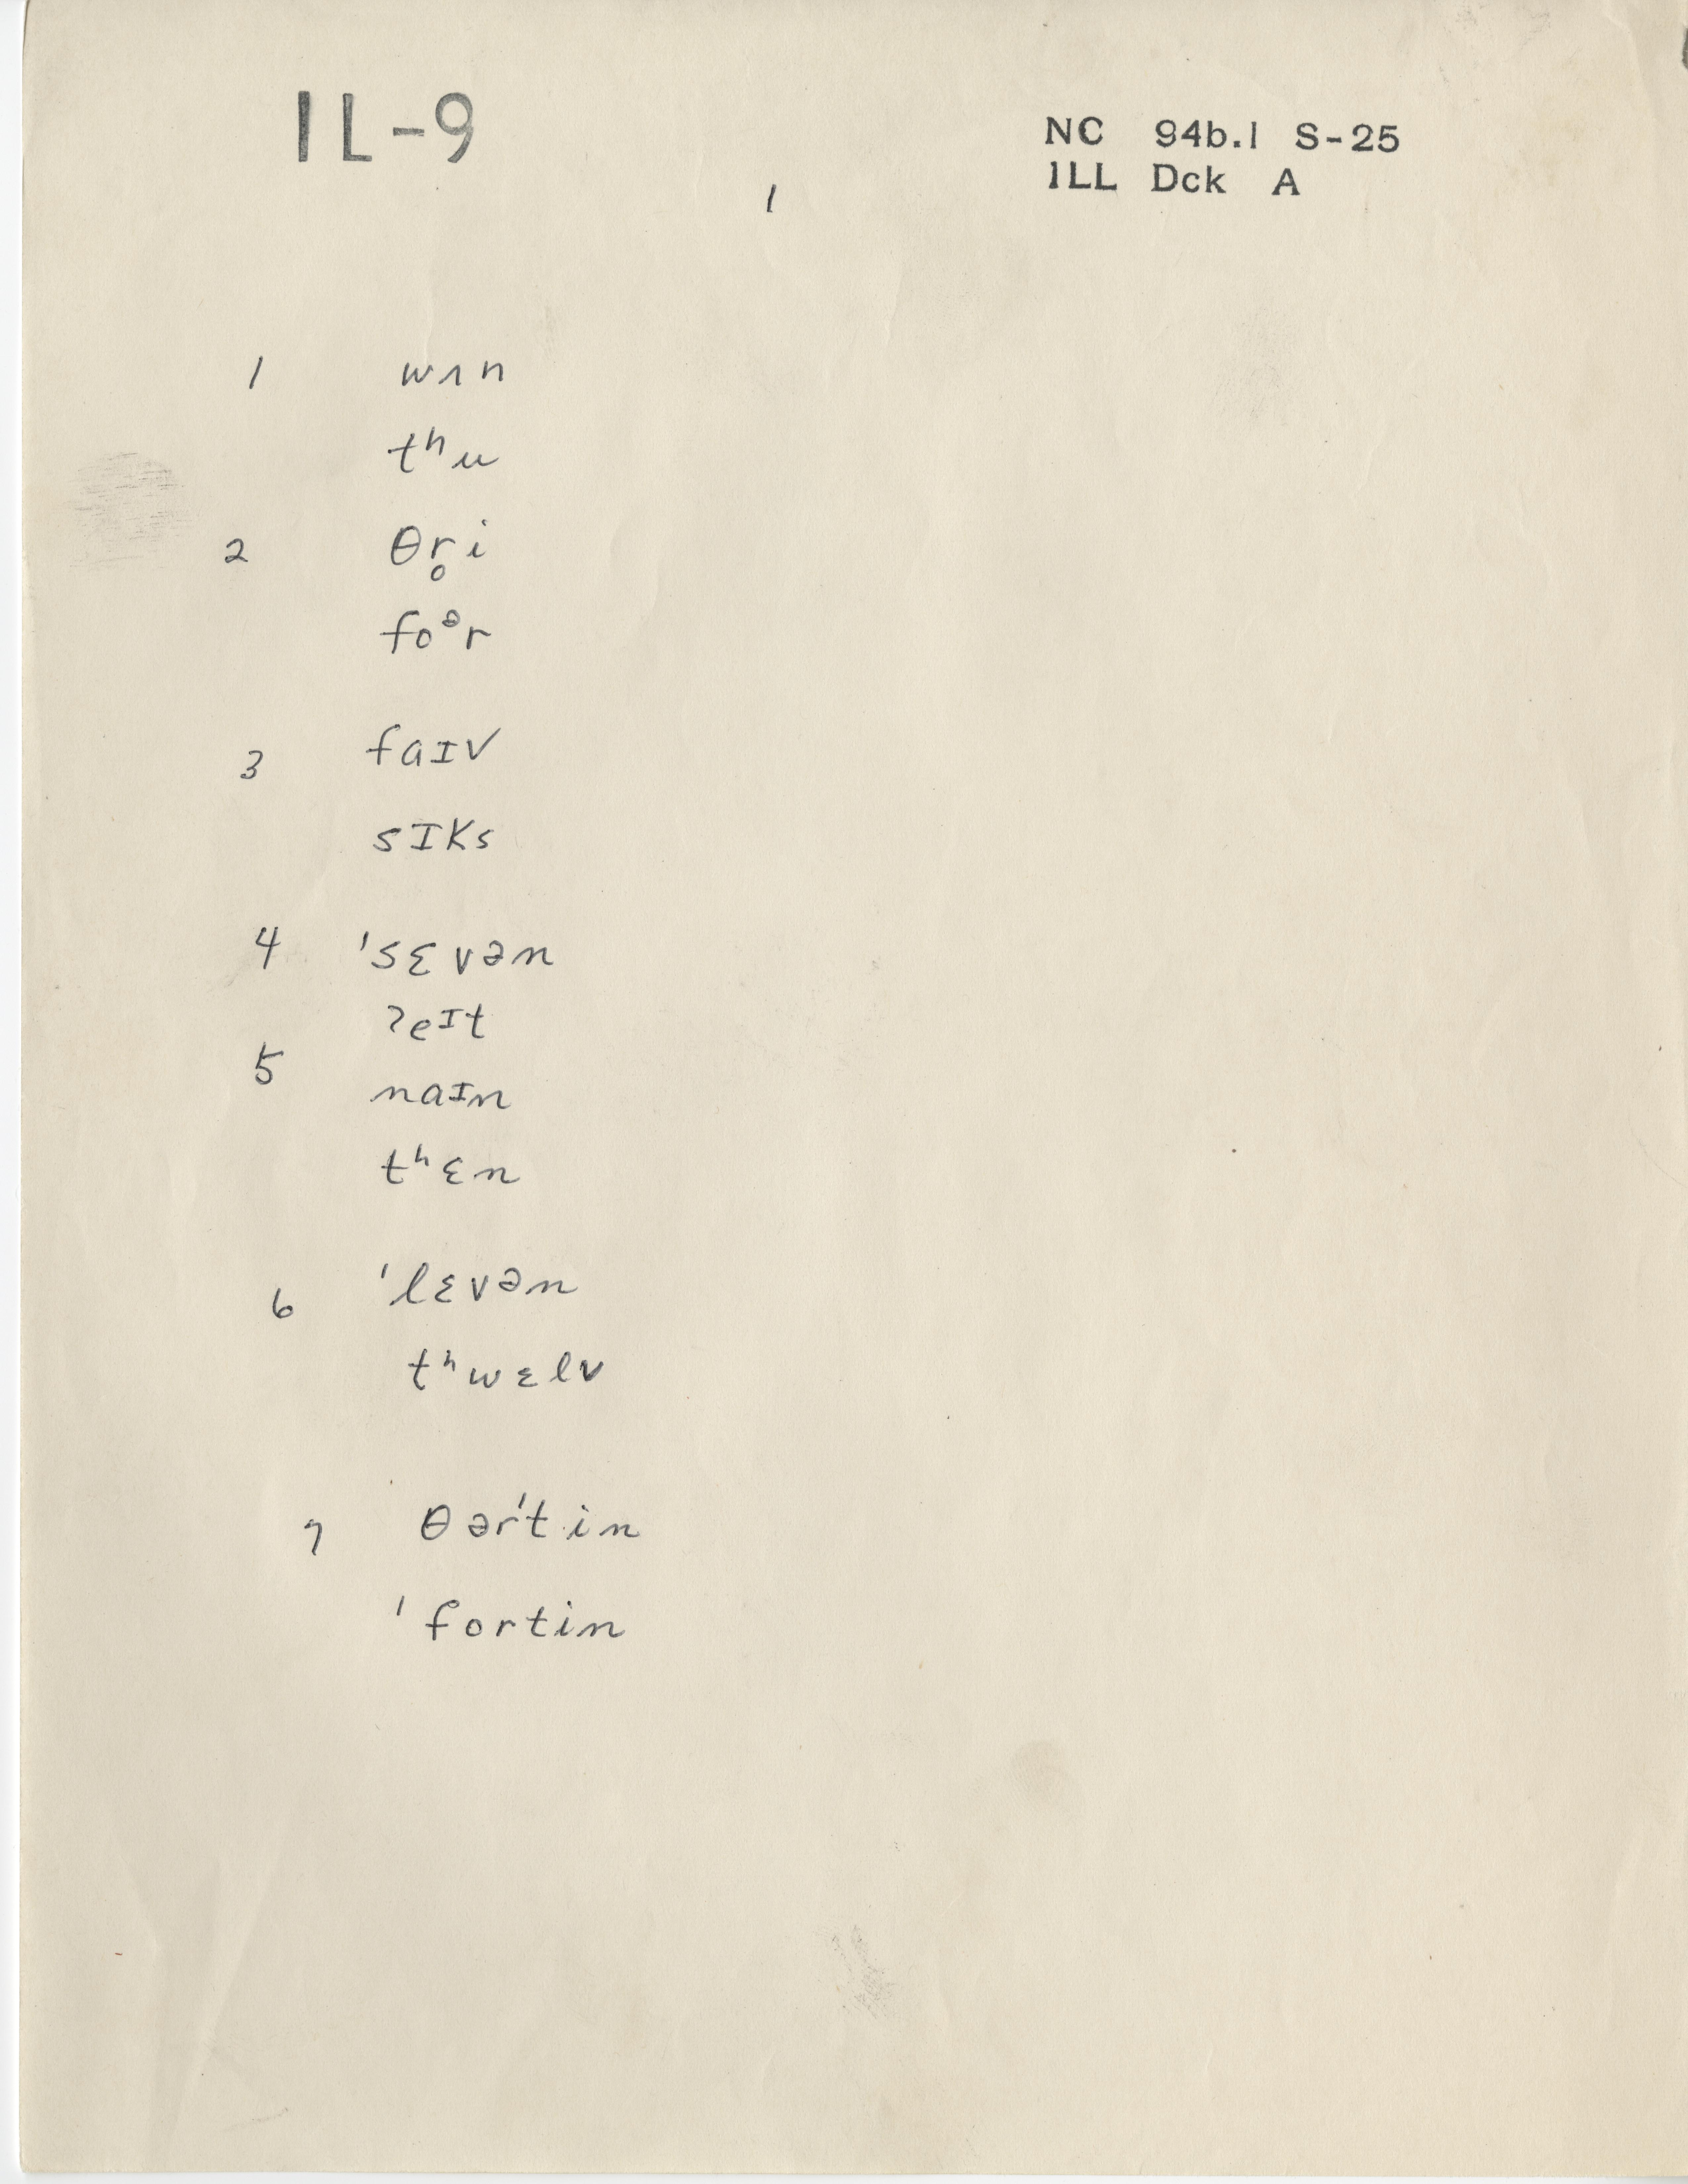 IL-9
NC 94b.1 S-25
ILL Dck A
1
1 wʌn
tʰu
2 θr̥i
foᵊr
3 faɪv
sɪks
4 'sɛvən
ʔeɪt
5 naɪn
tʰɛn
6 'lɛvən
tʰwɛlv
7 θər'tin
'fortin